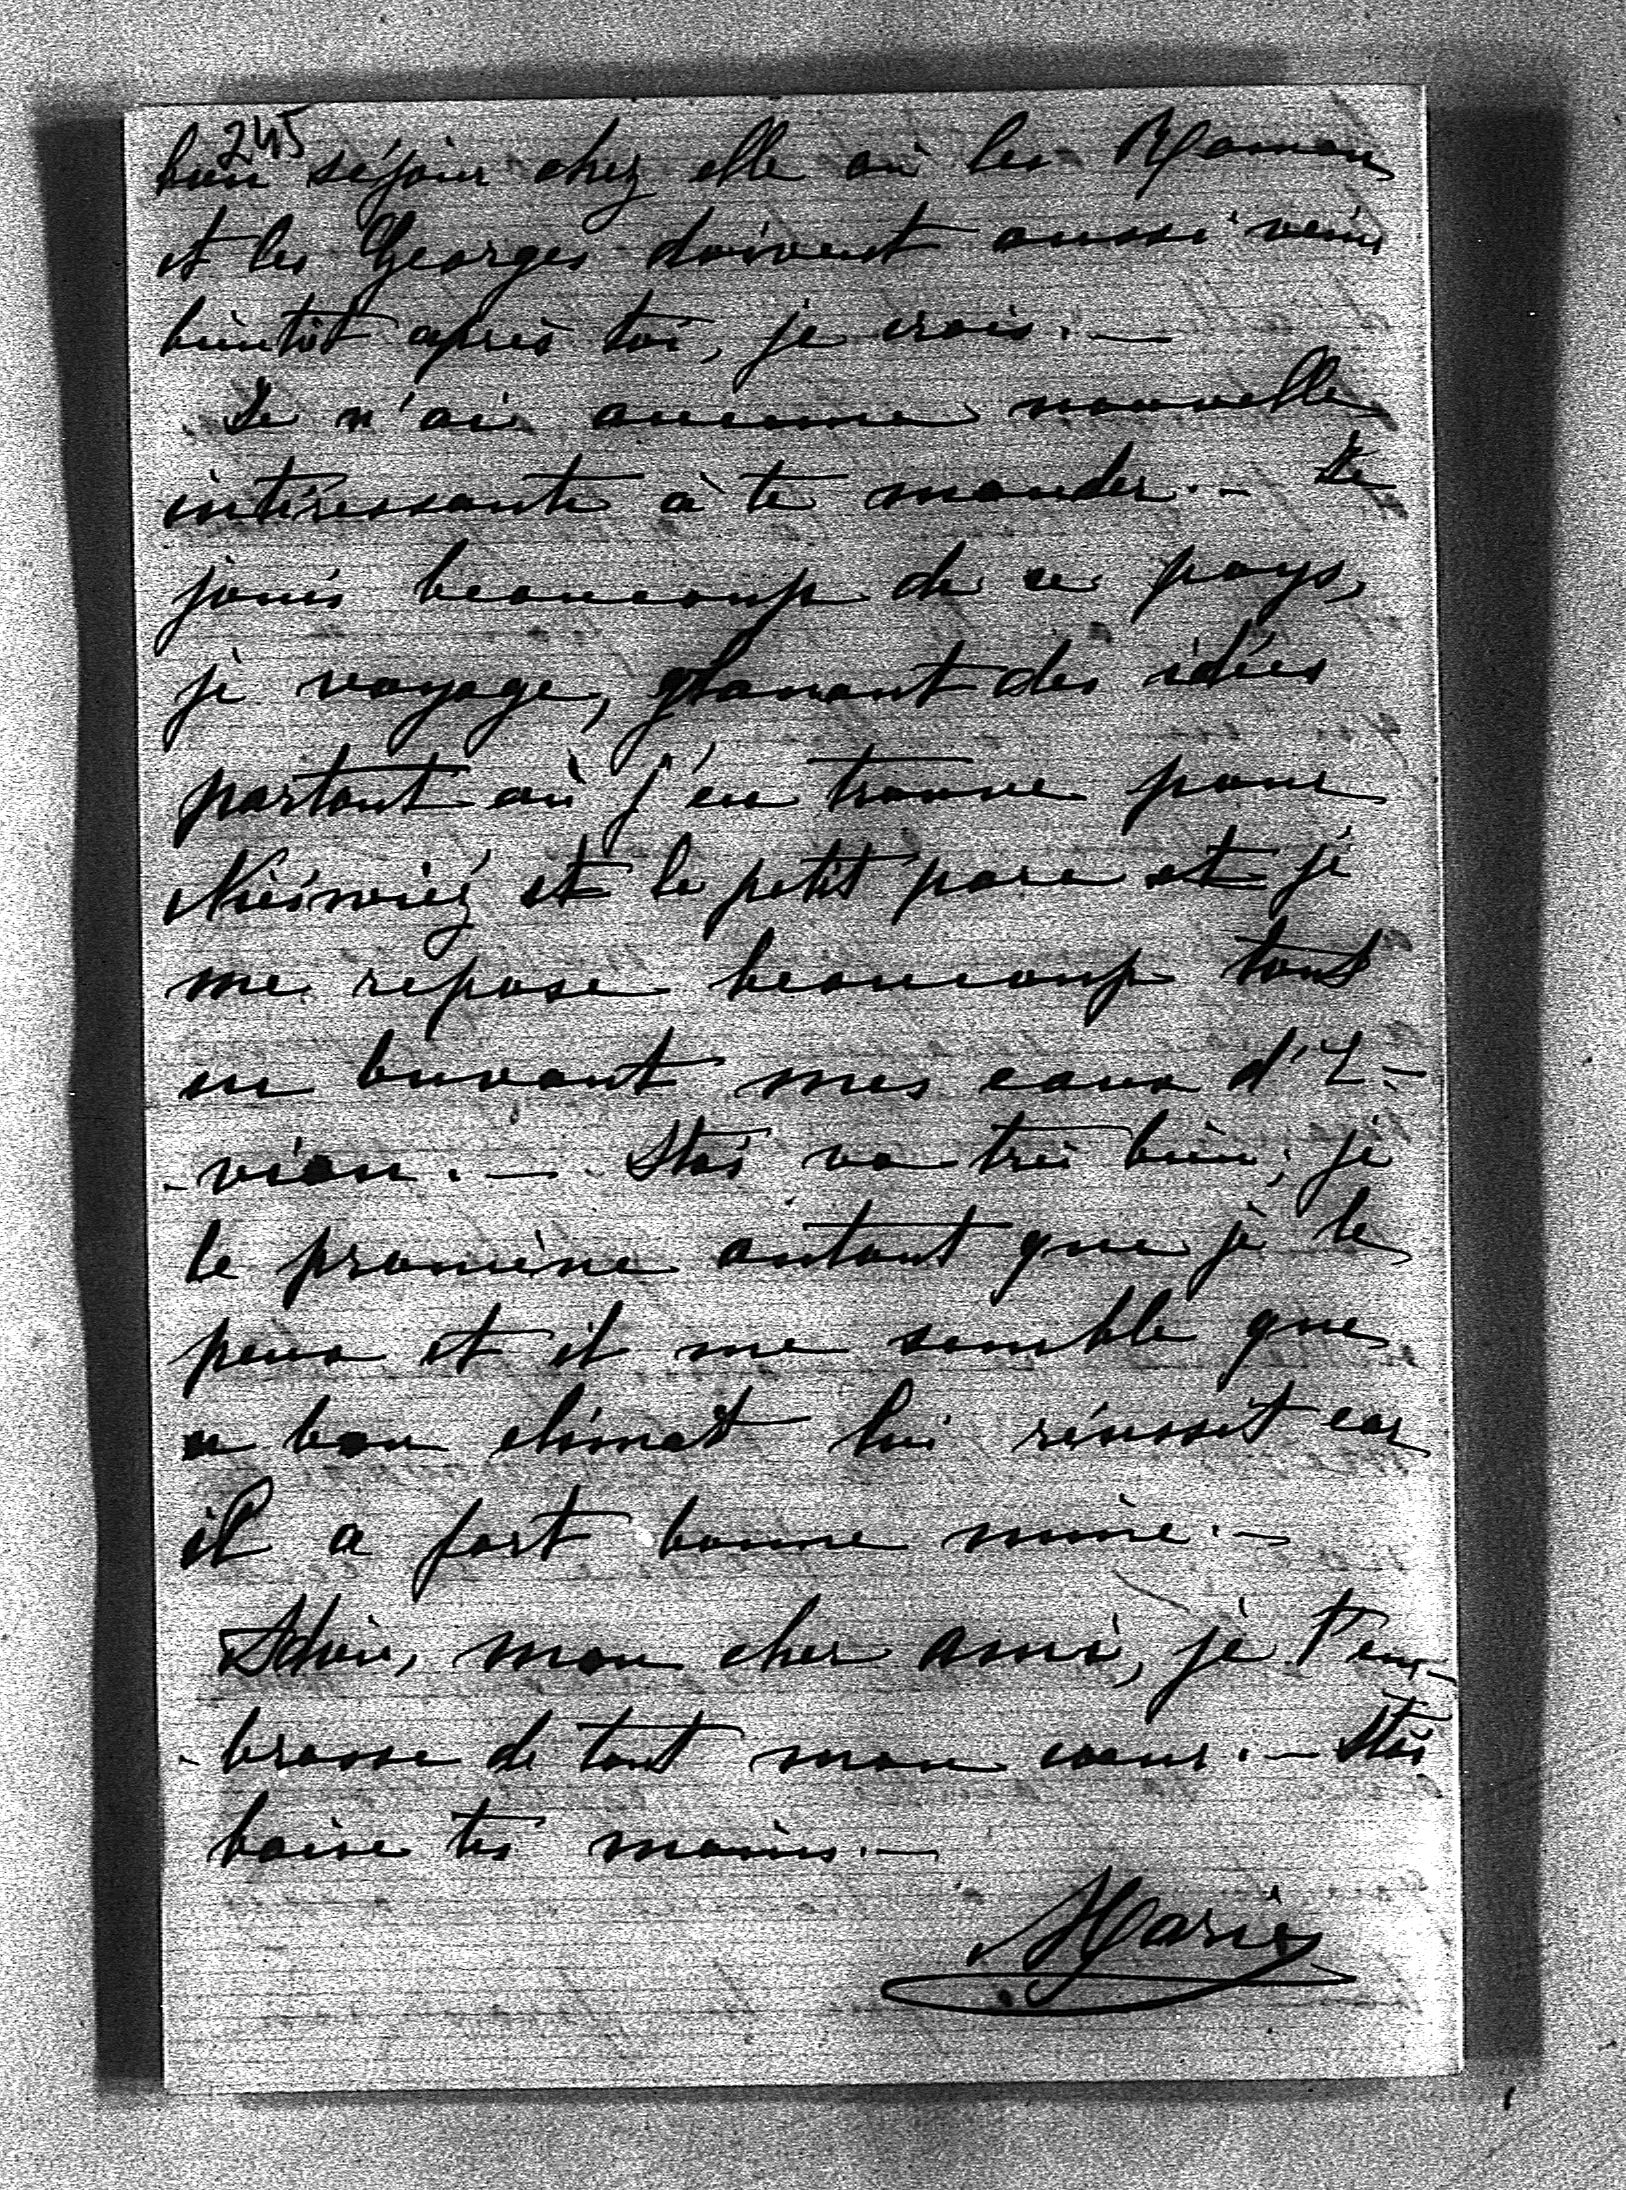 245
bon séjour chez elle où les Roman
et les Georges doivent aussi venir
bientôt après toi, je crois. —
Je n'ai aucune nouvelle
intéressante à te mander. — Je
jouis beaucoup de ce pays,
je voyage, glanant des idées
partout où j'en trouve pour
Nieśwież et le petit parc et je
me repose beaucoup tout
en buvant mes eaux d'E-
-vian. — Staś va très bien; je
le promène autant que je le
peux et il me semble que
ce bon climat lui réussit car
il a fort bonne mine. —
Adieu, mon cher ami, je t'em-
-brasse de tout mon cœur. — Staś
baise tes mains. —
Marie